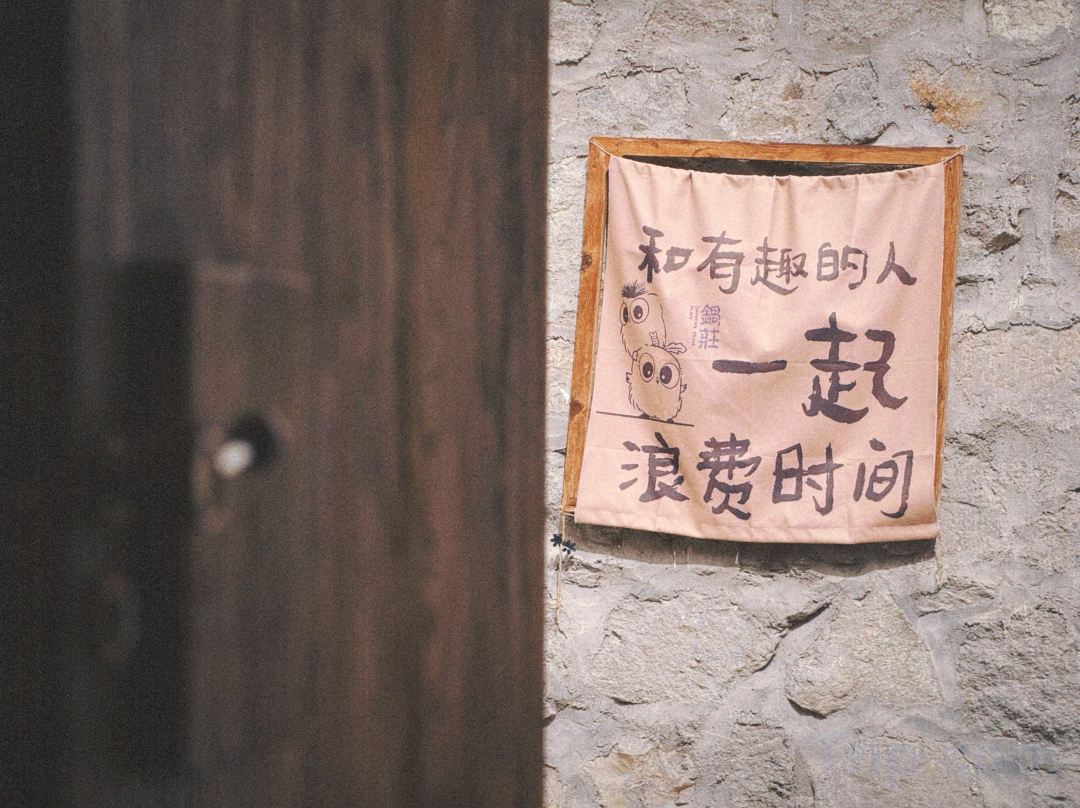 和有趣的人
鍋莊
一起
浪费时间
Trip.com